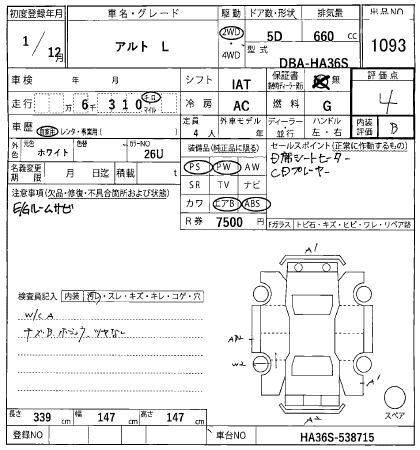 初度登録年月 車名・グレード 駆動 ドア数・形状 排気量 出品NO
1/12月 アルト L 2WD・4WD 5D 660cc 1093
型式 DBA-HA36S
車検 年 月 シフト IAT 保証書 無 評価点 4
走行 万6千310 キロ マイル 冷房 AC 燃料 G
車歴 自家用・レンタ・事業用( ) 定員 4人 外車モデル 年 ディーラー・並行 ハンドル 左・右 内装評価 B
外色 元色 ホワイト 色替 カラーNO 26U
装備品(純正品に限る) セールスポイント(正常に作動するもの)
名義変更期限 月 日迄 積載 t
PS PW AW
SR TV ナビ
カワ エアB ABS
R券 7500円
シートヒーター
CDプレーヤー
注意事項(欠品・修復・不具合箇所および状態)
E/Gルームサビ
Fガラス トビ石・キズ・ヒビ・ワレ・リペア跡
検査員記入 内装 汚レ・スレ・キズ・キレ・コゲ・穴
W/C A
A1
W2
A1
A2
スペア
長さ 339cm 幅 147cm 高さ 147cm
登録NO 車台NO HA36S-538715